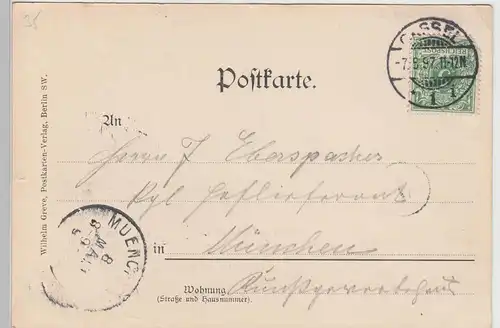 38
CASSEL
-7.8.97.11-12N.
1 1
REICHSPOST
Postkarte.
An
Herrn J. Eberspacher
Kgl Hoflieferant
in München
Wohnung
(Straße und Hausnummer).
Wilhelm Greve, Postkarten-Verlag, Berlin SW.
MUENC
8